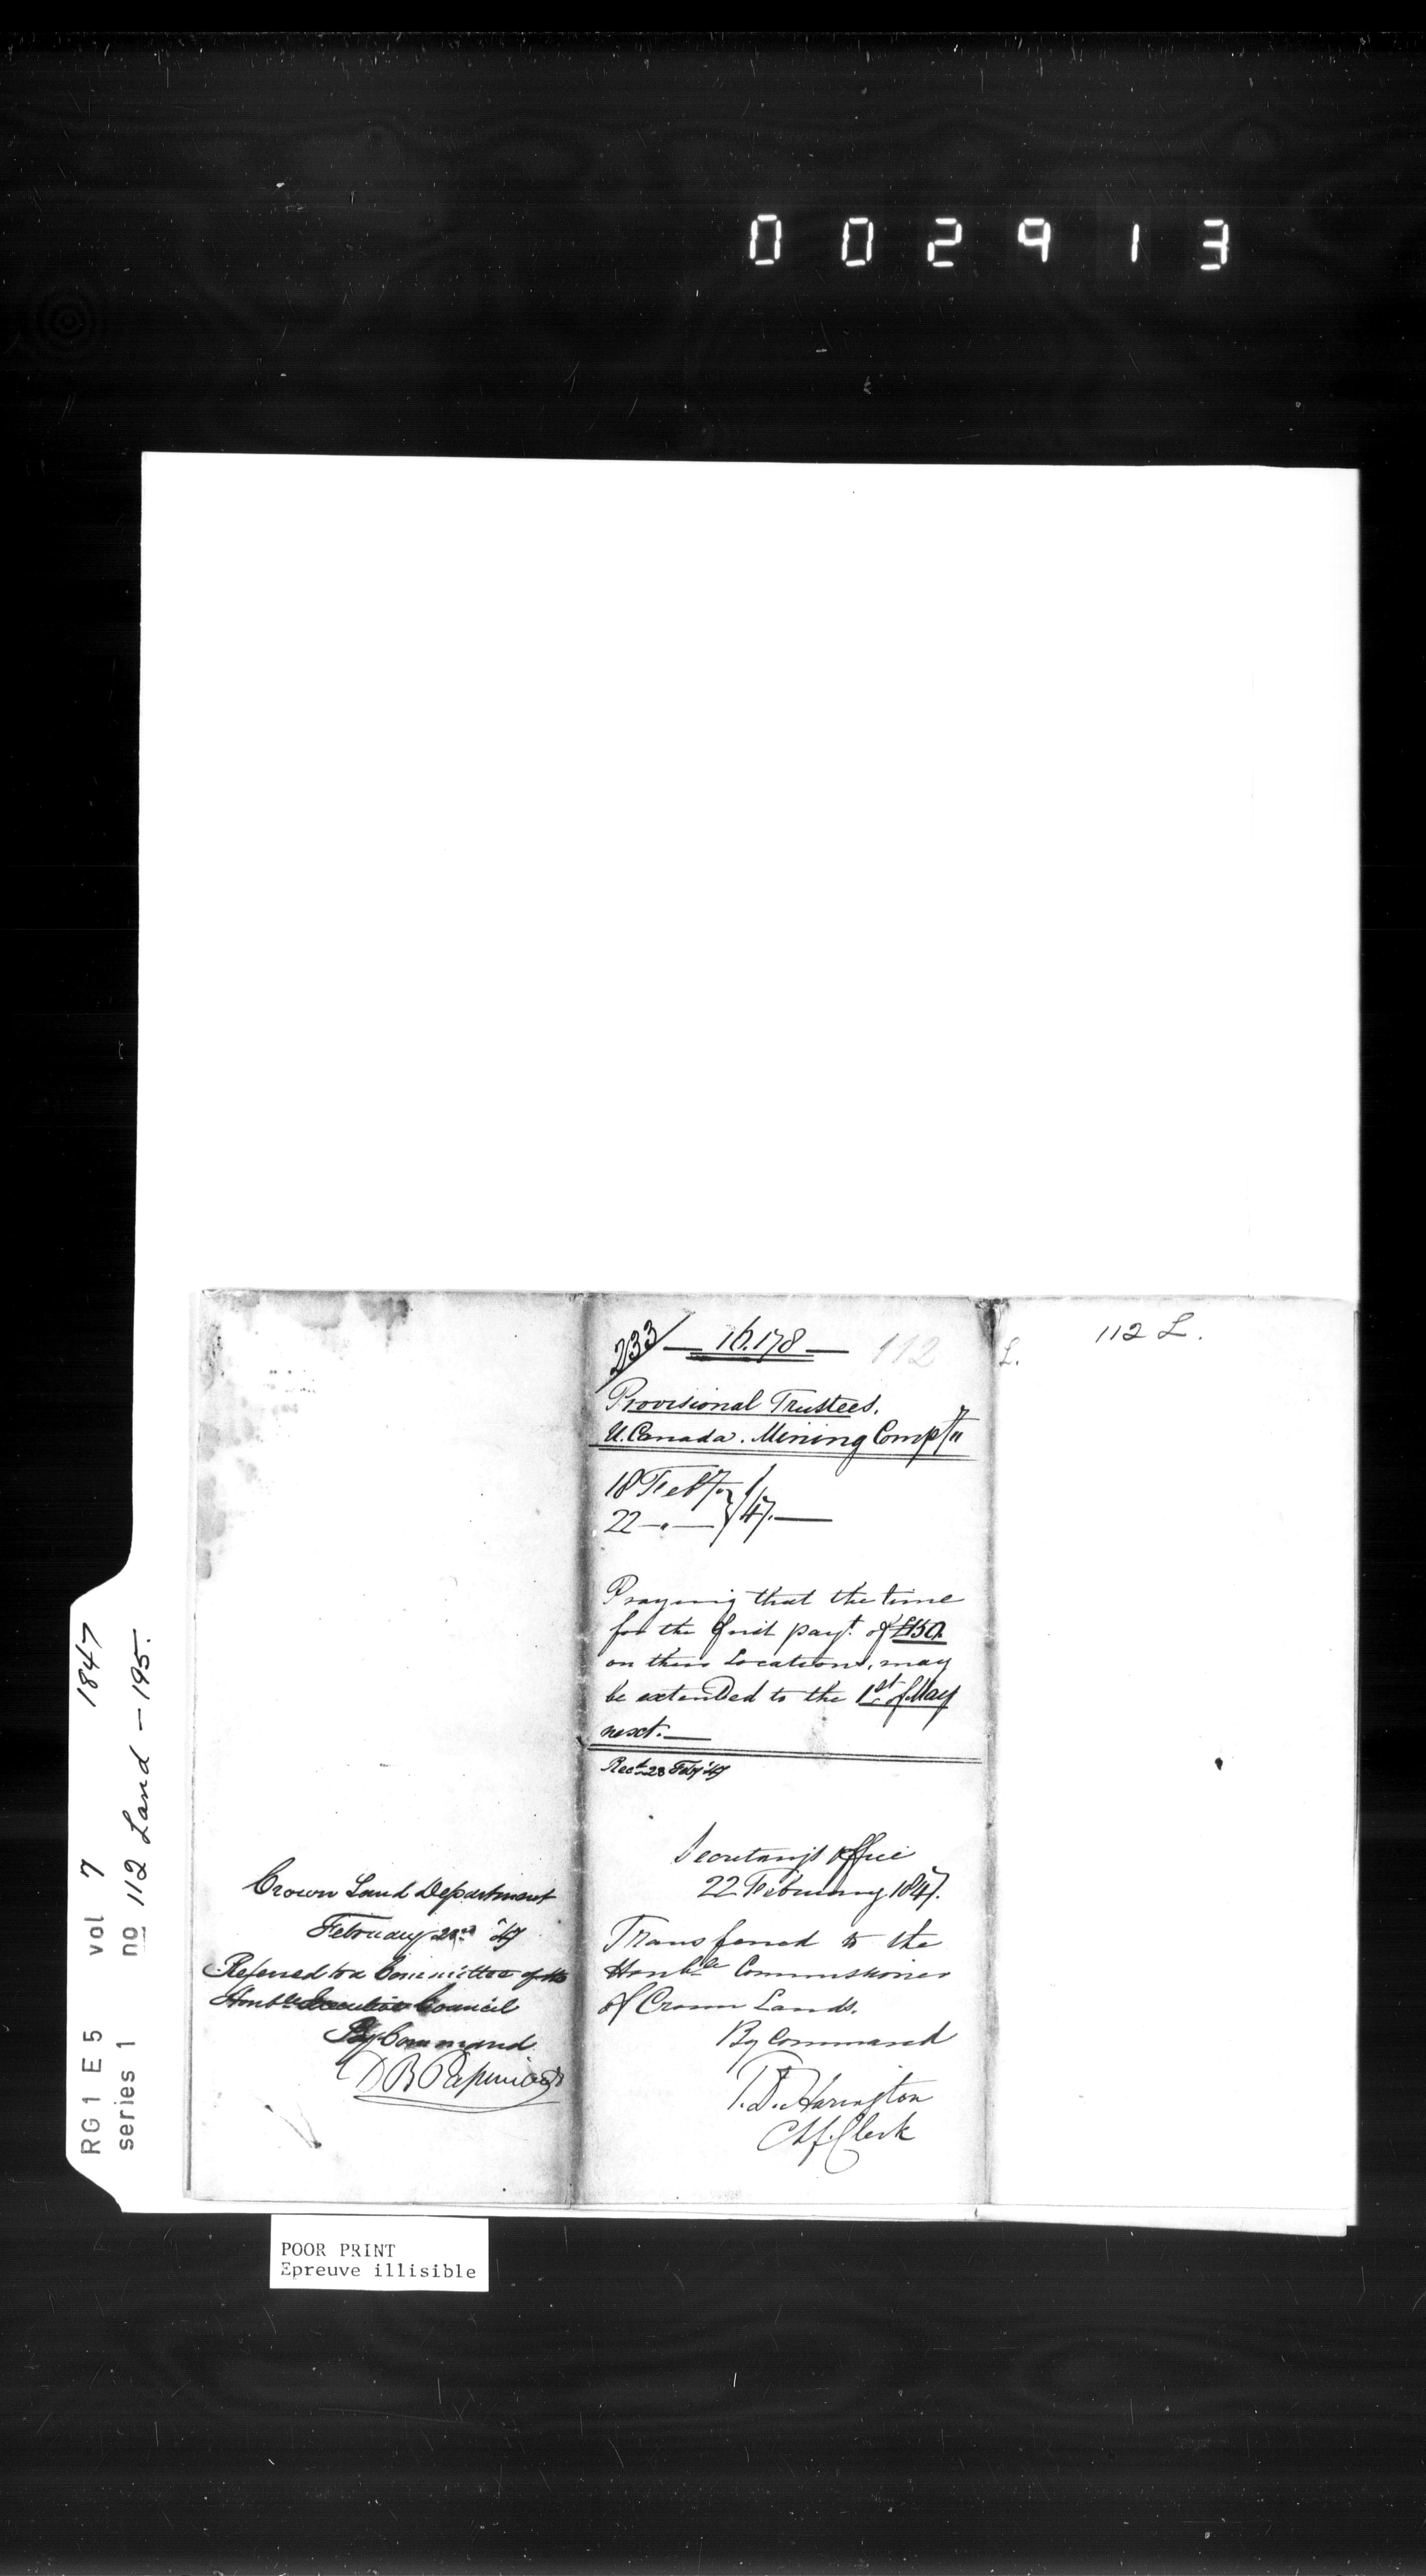 002913
RG1 E5 vol 7 1847
series 1 no 112 Land - 195.
Crown Land Department
February 23rd '47
Referred to a Committee of the
Honble Executive Council
By Command
D B Papineau
233/ — 16.178 — 112
Provisional Trustees.
U. Canada. Mining Compy
18 Feby
22 — " — } /47. —
Praying that the time
for the first payt. of £150
on their Locations, may
be extended to the 1st of May
next. —
Recd 23 Feby '47
Secretary's Office
22 February 1847.
Transferred to the
Honble Commissioner
of Crown Lands.
By Command
T. D. Harington
Chf. Clerk
L.
112 L.
POOR PRINT
Epreuve illisible